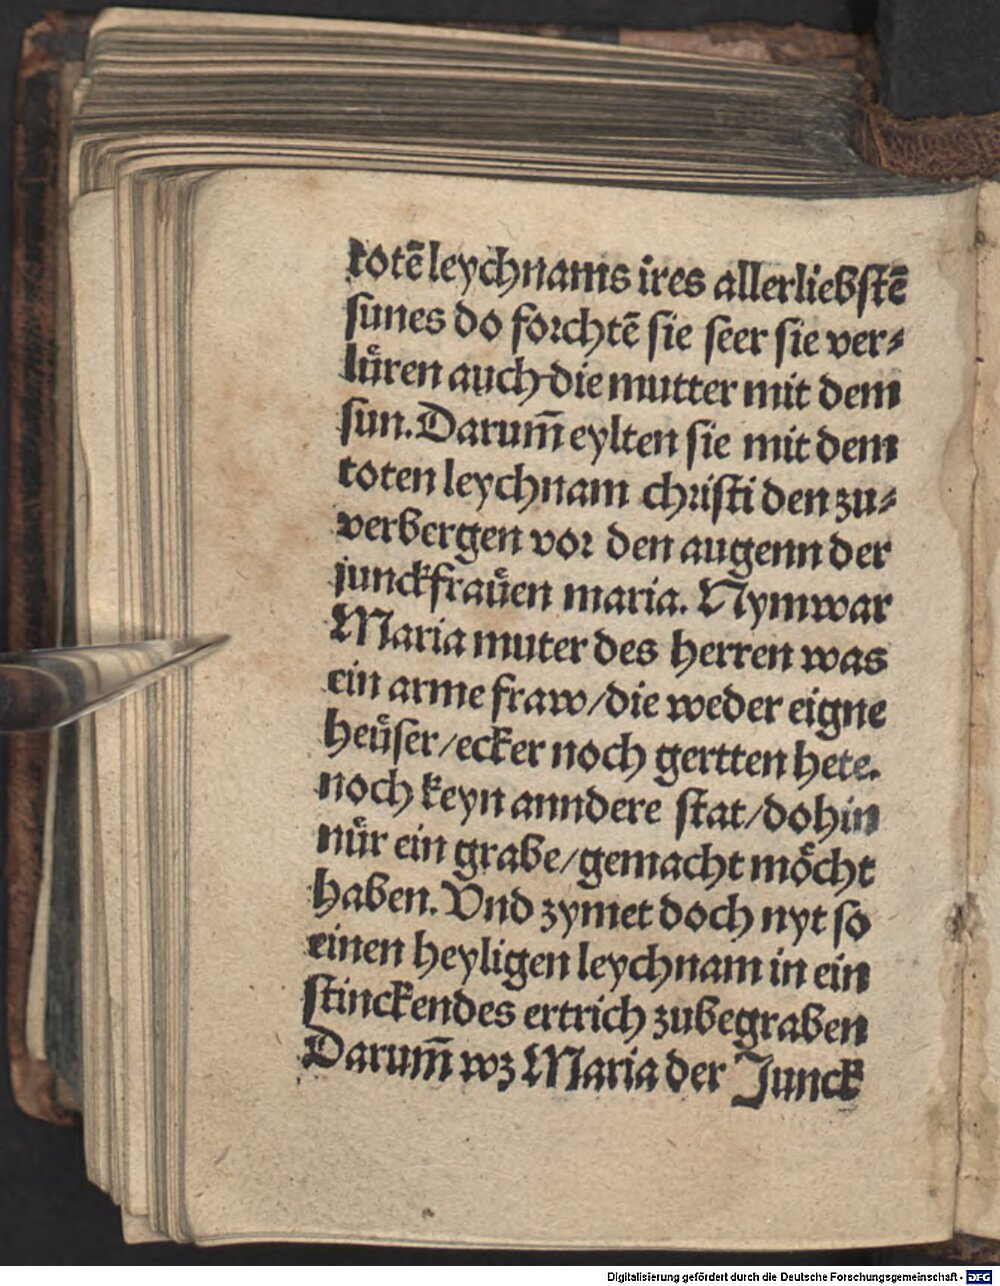 totē leychnams ires allerliebstē
sunes do forchtē sie seer sie ver⸗
luͤren auch die mutter mit dem
sun. Darum̄ eylten sie mit dem
toten leychnam christi den zu⸗
verbergen vor den augenn der
junckfrauͤen maria. Nymwar
Maria muter des herren was
ein arme fraw/die weder eigne
heuͤser/ecker noch gertten hete.
noch keyn anndere stat/dohin
nuͤr ein grabe/gemacht moͤcht
haben. Vnd zymet doch nyt so
einen heyligen leychnam in ein
stinckendes ertrich zubegraben
Darum̄ wz Maria der Junck
Digitalisierung gefördert durch die Deutsche Forschungsgemeinschaft - DFG